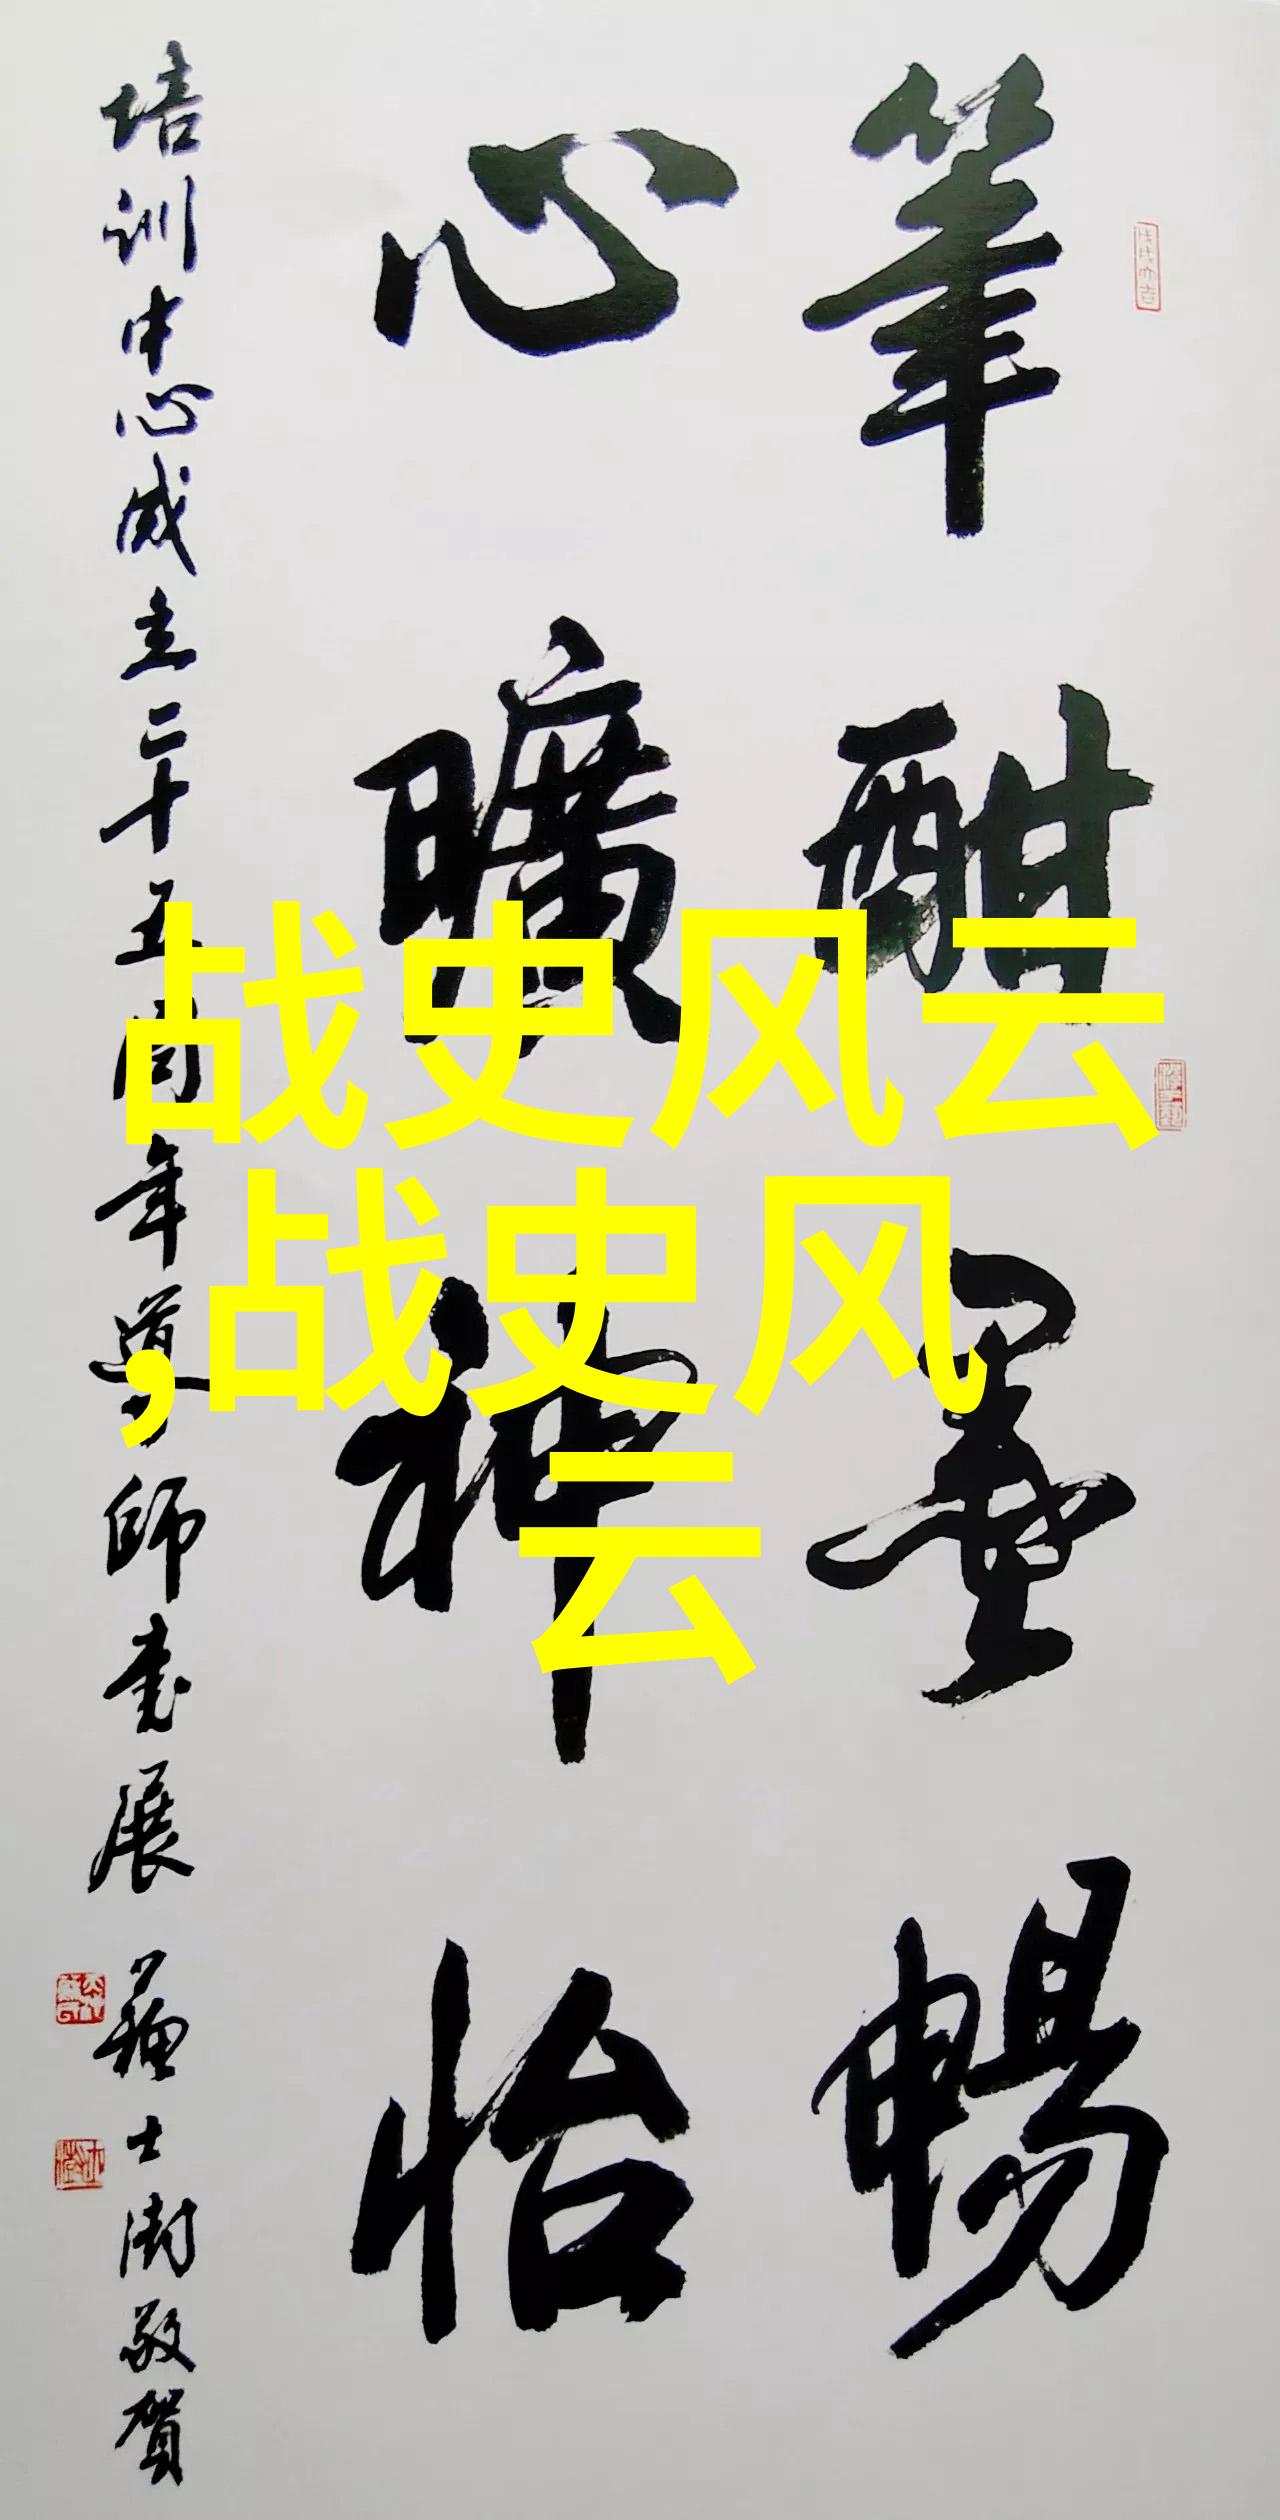 筆酣墨暢
心曠神怡
培训中心成立二十五周年導师书展 苏士澍敬贺
战史风云
,战史风
云